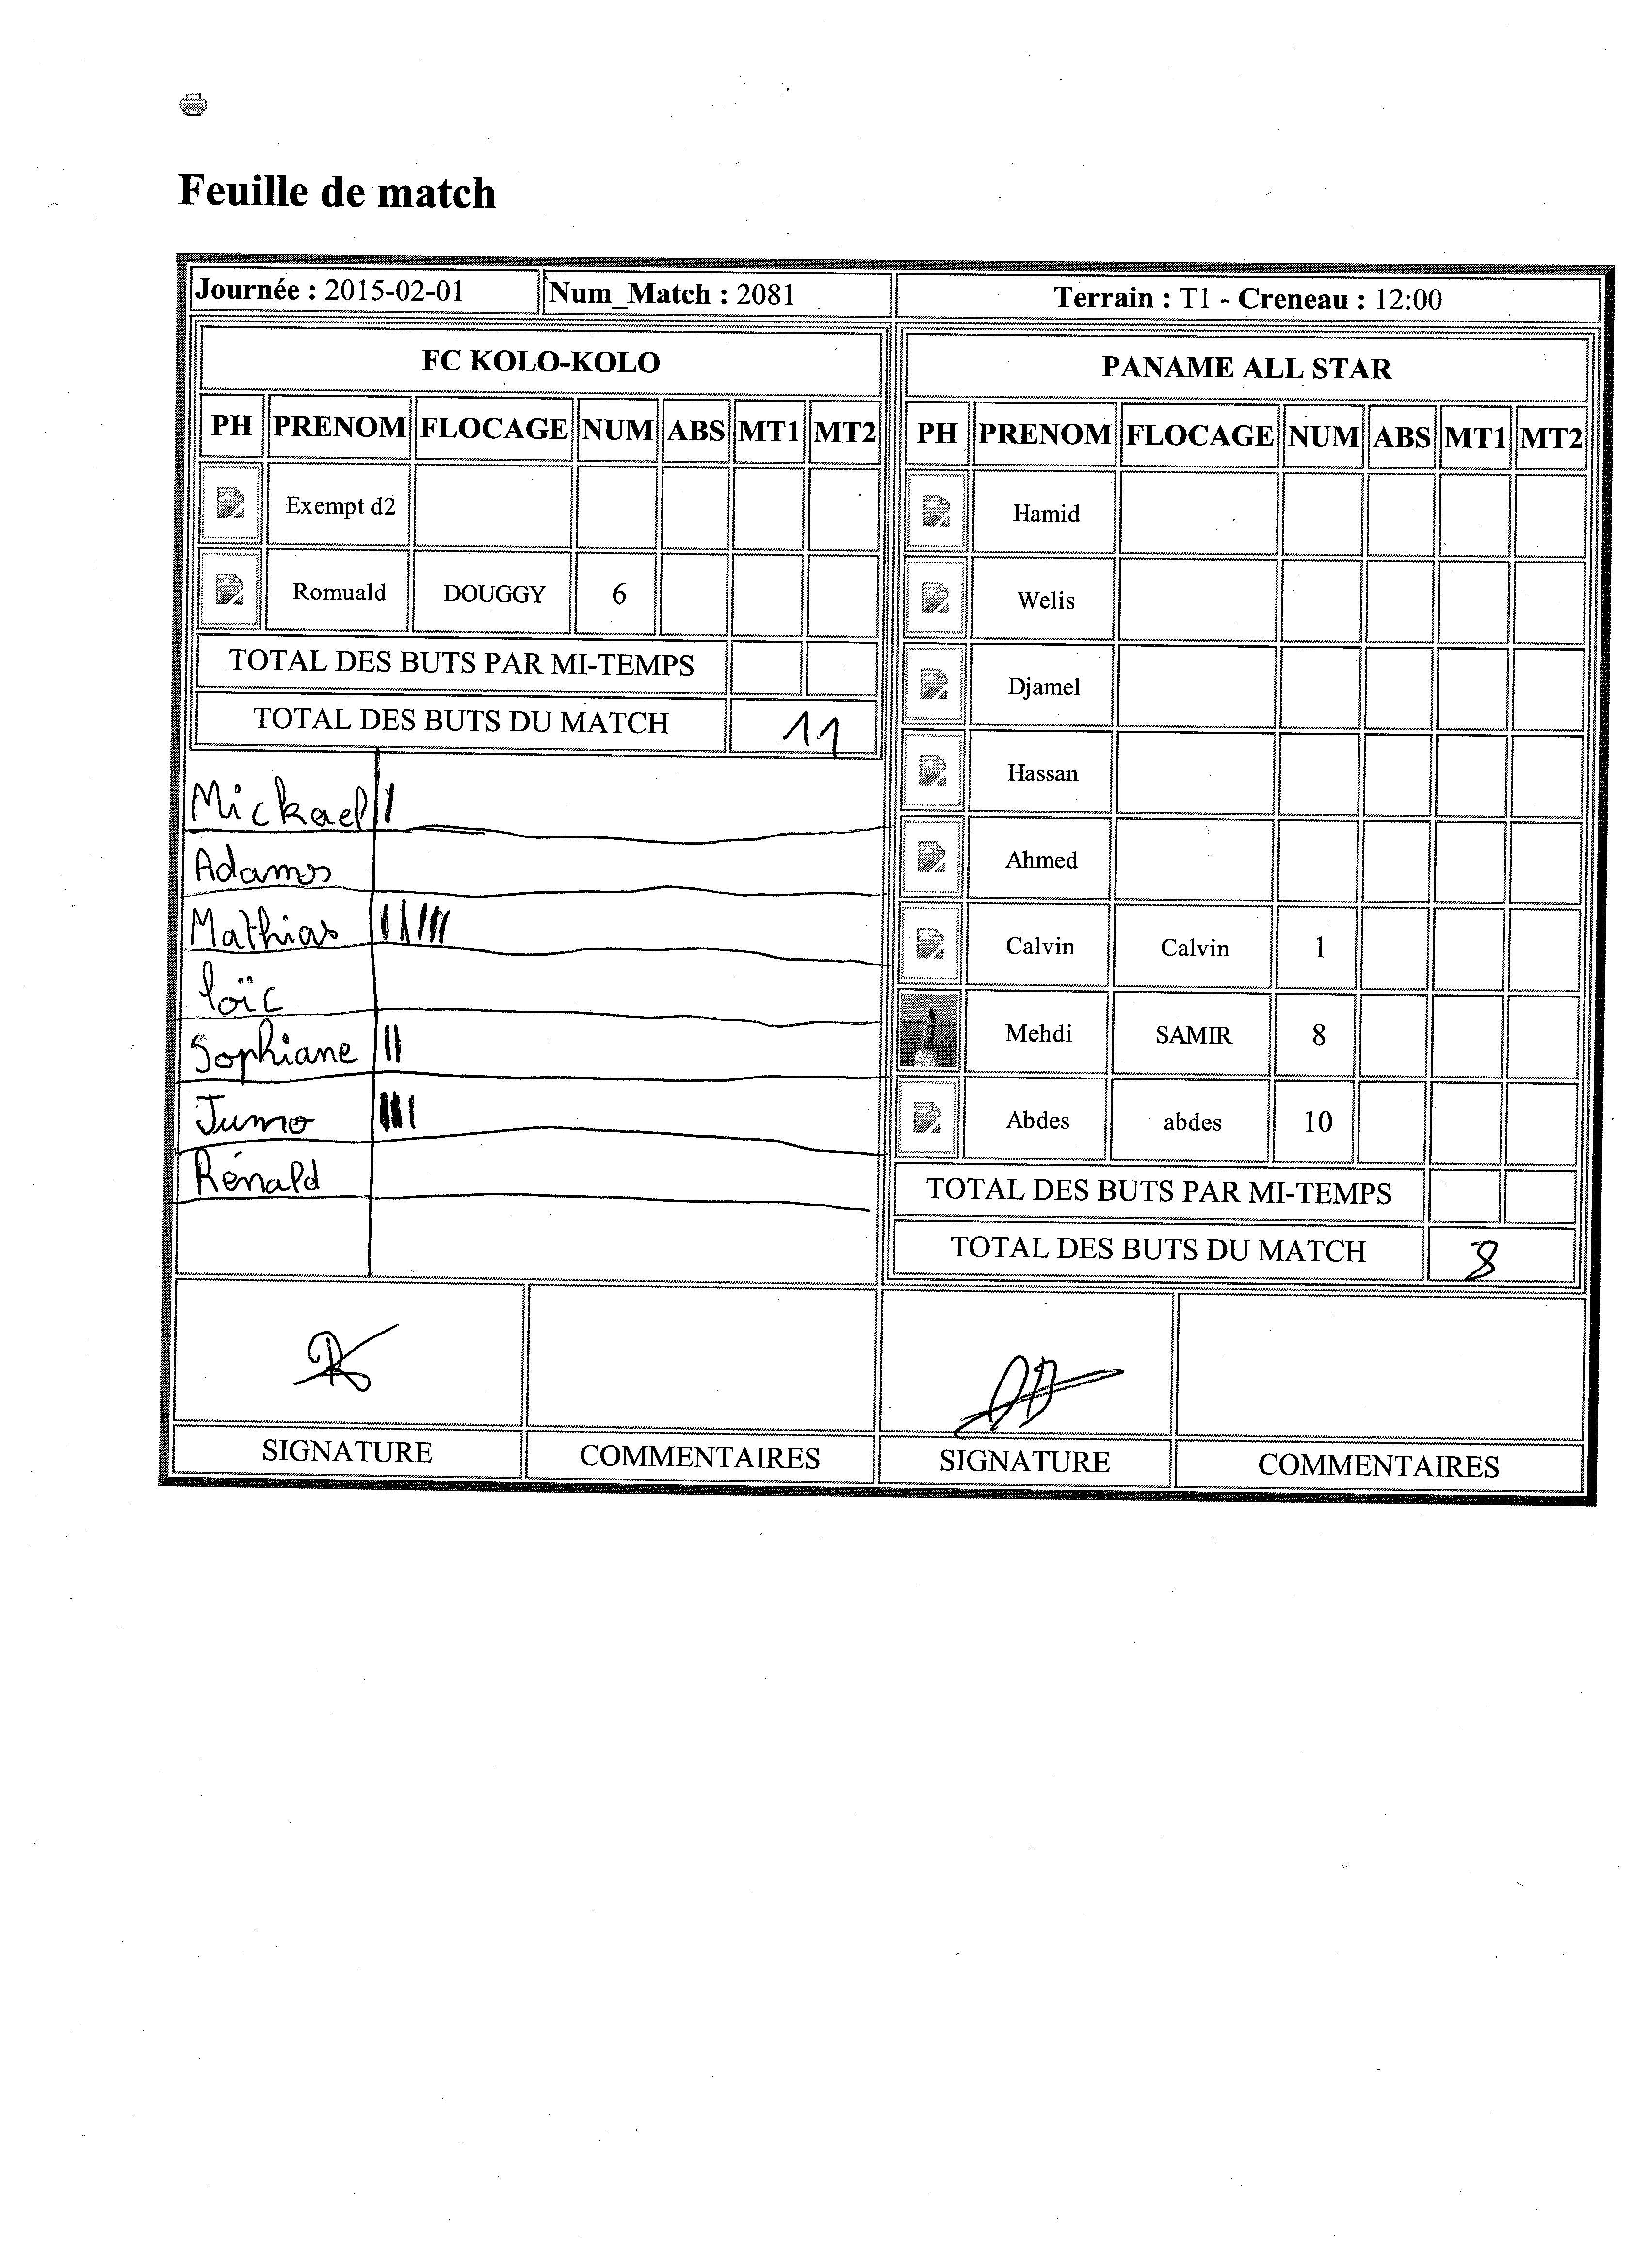 Feuille de match
Journée : 2015-02-01 Num_Match : 2081 Terrain : T1 - Creneau : 12:00
FC KOLO-KOLO
PH PRENOM FLOCAGE NUM ABS MT1 MT2
Exempt d2
Romuald DOUGGY 6
TOTAL DES BUTS PAR MI-TEMPS
TOTAL DES BUTS DU MATCH 11
Mickael
Adams
Mathias
loïc
Sophiane
Jumo
Rénald
SIGNATURE COMMENTAIRES
PANAME ALL STAR
PH PRENOM FLOCAGE NUM ABS MT1 MT2
Hamid
Welis
Djamel
Hassan
Ahmed
Calvin Calvin 1
Mehdi SAMIR 8
Abdes abdes 10
TOTAL DES BUTS PAR MI-TEMPS
TOTAL DES BUTS DU MATCH 8
SIGNATURE COMMENTAIRES